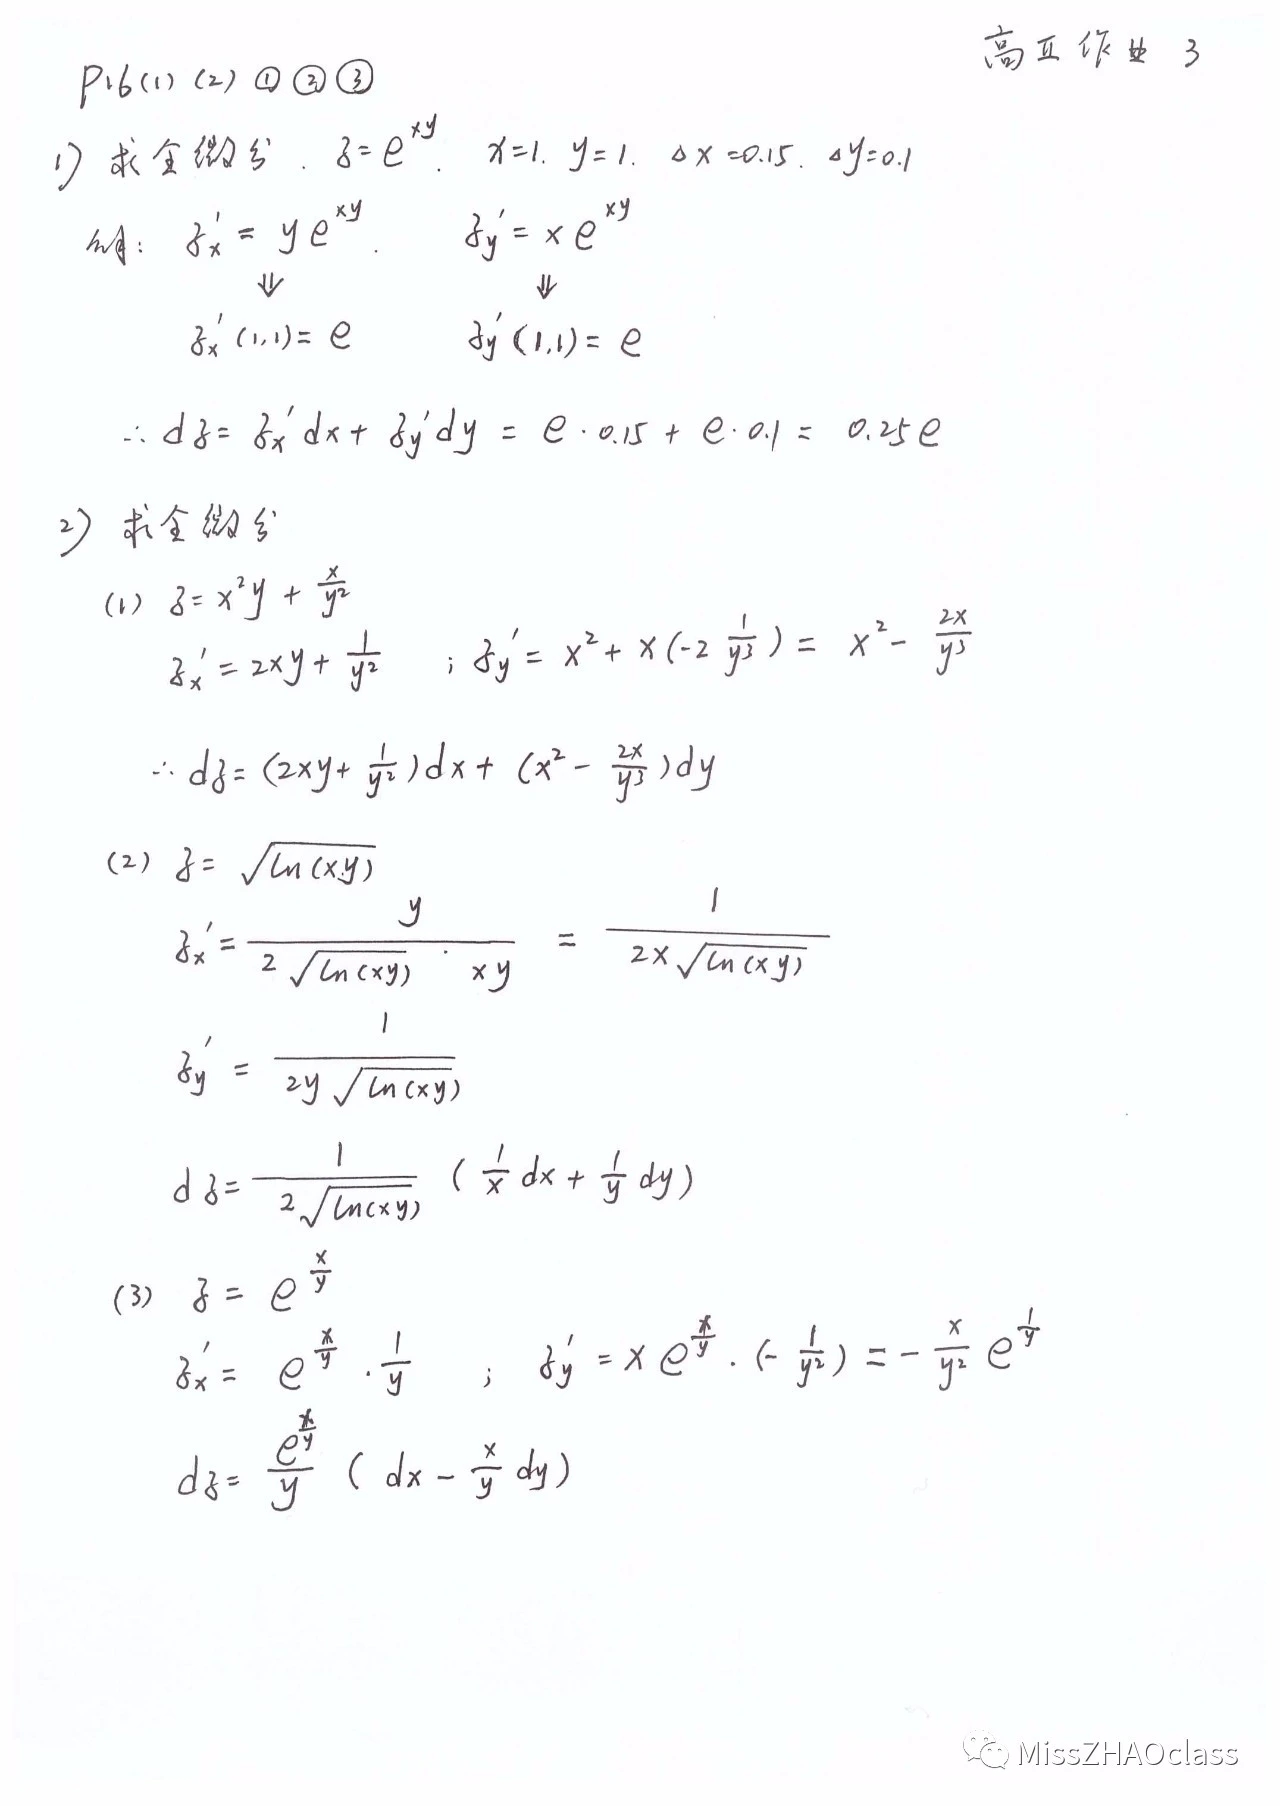 高工作业 3
P16 (1) (2) ① ② ③
1) 求全微分. z=e^{xy}. x=1. y=1. Δx=0.15. Δy=0.1
解: z_x' = ye^{xy}. z_y' = xe^{xy}
⇓ ⇓
z_x'(1,1)= e z_y'(1,1)= e
∴ dz= z_x'dx + z_y'dy = e·0.15 + e·0.1 = 0.25e
2) 求全微分
(1) z= x²y + x/y²
z_x' = 2xy + 1/y² ; z_y' = x² + x(-2 1/y³) = x² - 2x/y³
∴ dz= (2xy + 1/y²)dx + (x² - 2x/y³)dy
(2) z= √ln(xy)
z_x' = y/(2√ln(xy) · xy) = 1/(2x√ln(xy))
z_y' = 1/(2y√ln(xy))
dz= 1/(2√ln(xy)) (1/x dx + 1/y dy)
(3) z = e^{x/y}
z_x' = e^{x/y} · 1/y ; z_y' = xe^{x/y} · (- 1/y²) = - x/y² e^{1/y}
dz= e^{x/y}/y (dx - x/y dy)
MissZHAOclass